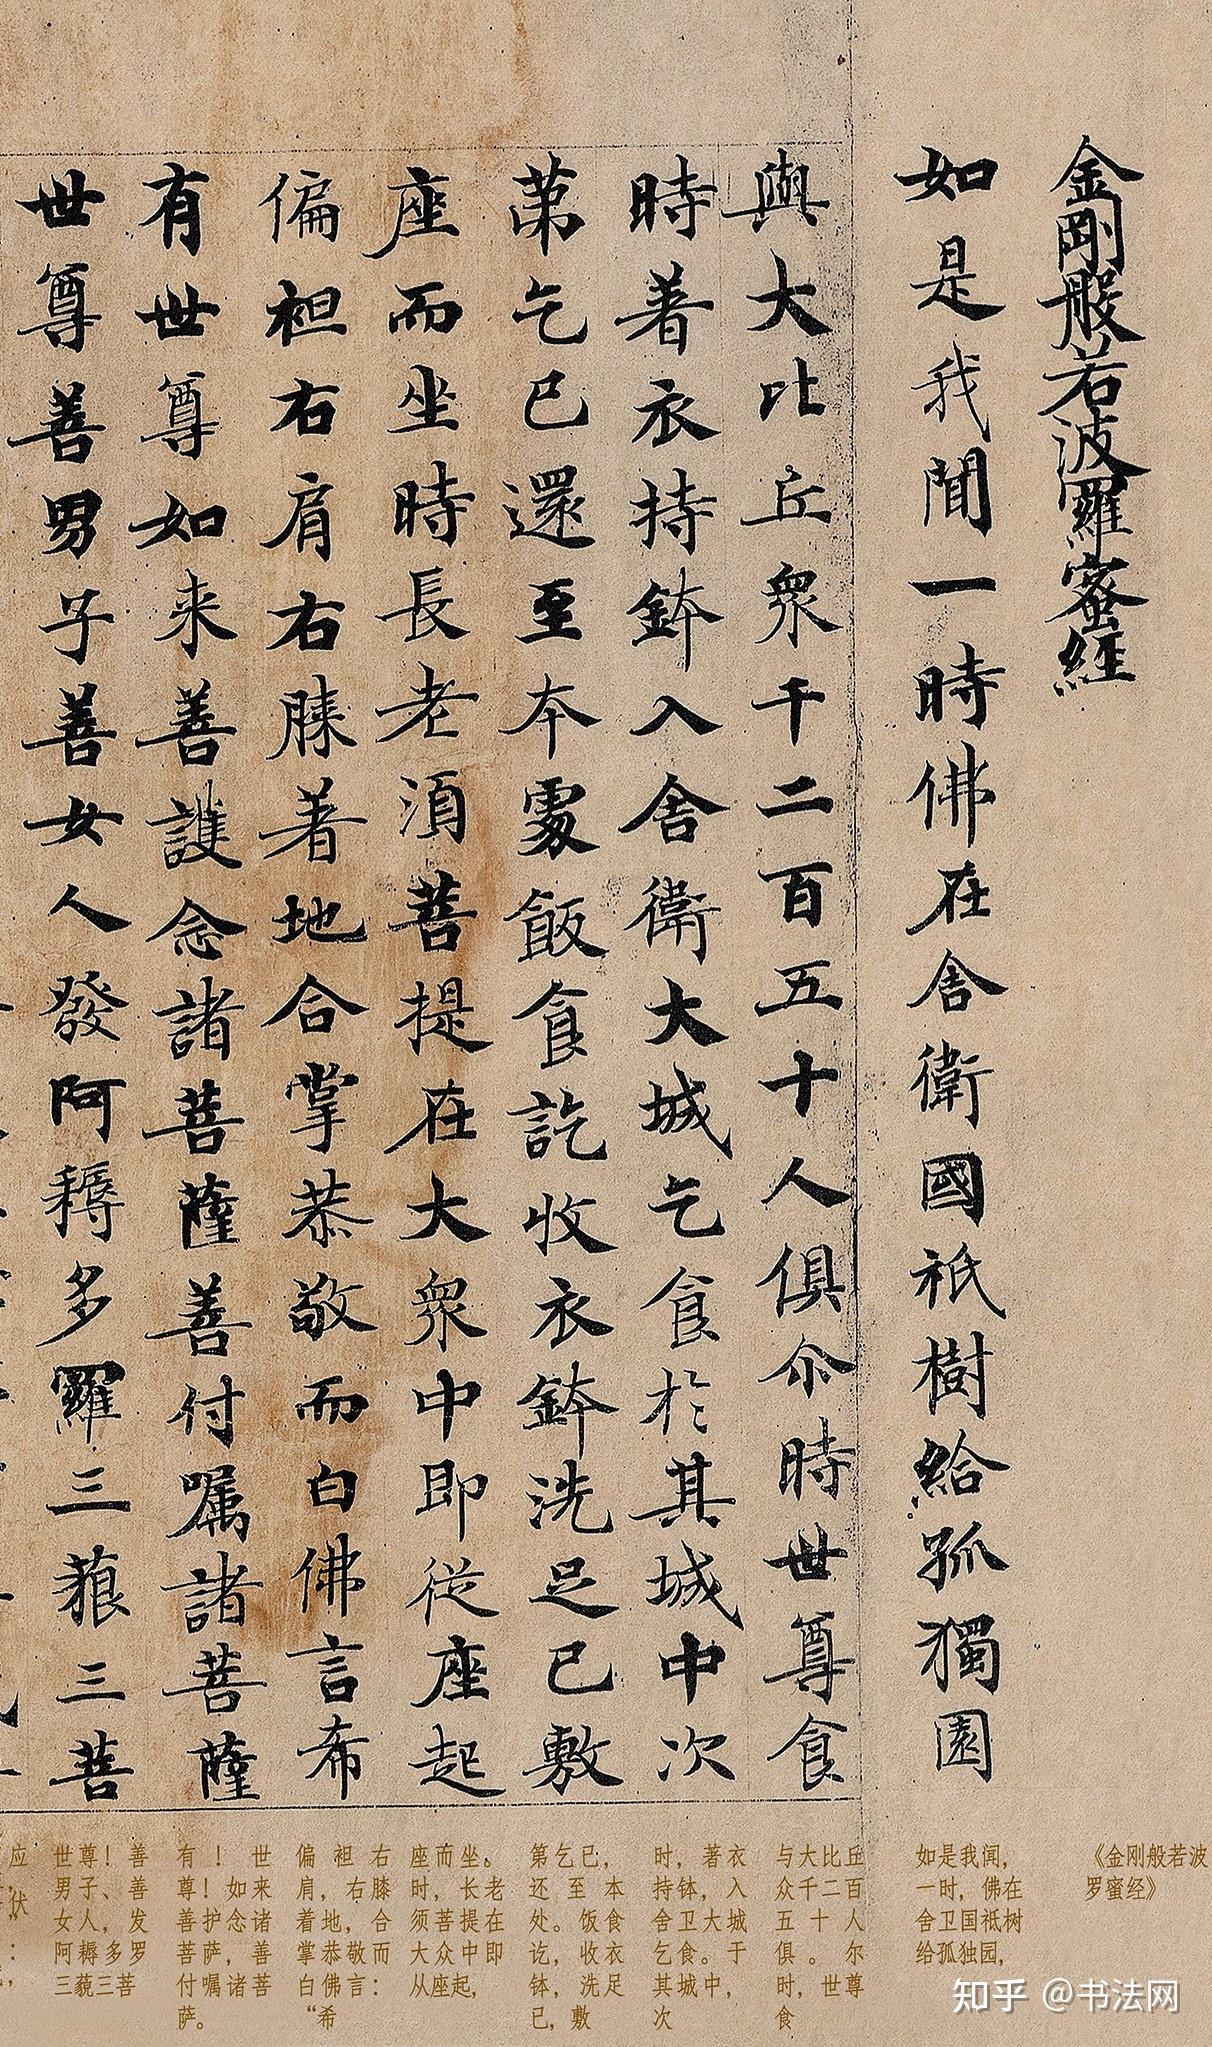 金剛般若波羅蜜經
如是我聞一時佛在舍衛國祇樹給孤獨園
與大比丘衆千二百五十人俱尒時世尊食
時著衣持鉢入舍衛大城乞食於其城中次
苐乞已還至本處飯食訖收衣鉢洗足已敷
座而坐時長老湏菩提在大衆中即從座起
偏袒右肩右膝著地合掌恭敬而白佛言希
有世尊如来善護念諸菩薩善付嘱諸菩薩
世尊善男子善女人發阿耨多羅三藐三菩
《金刚般若波
罗蜜经》
如是我闻，
一时，佛在
舍卫国祇树
给孤独园，
与大比丘
众千二百
五十人
俱。尔
时，世尊
食
时，著衣
持钵，入
舍卫大城
乞食。于
其城中，
次
第乞已，
还至本
处。饭食
讫，收衣
钵，洗足
已，敷
座而坐。
时，长老
须菩提在
大众中即
从座起，
偏袒右
肩，右膝
着地，合
掌恭敬而
白佛言：
“希
有！世
尊！如来
善护念诸
菩萨，善
付嘱诸菩
萨。
世尊！善
男子、善
女人，发
阿耨多罗
三藐三菩
应
伏
知乎 @书法网